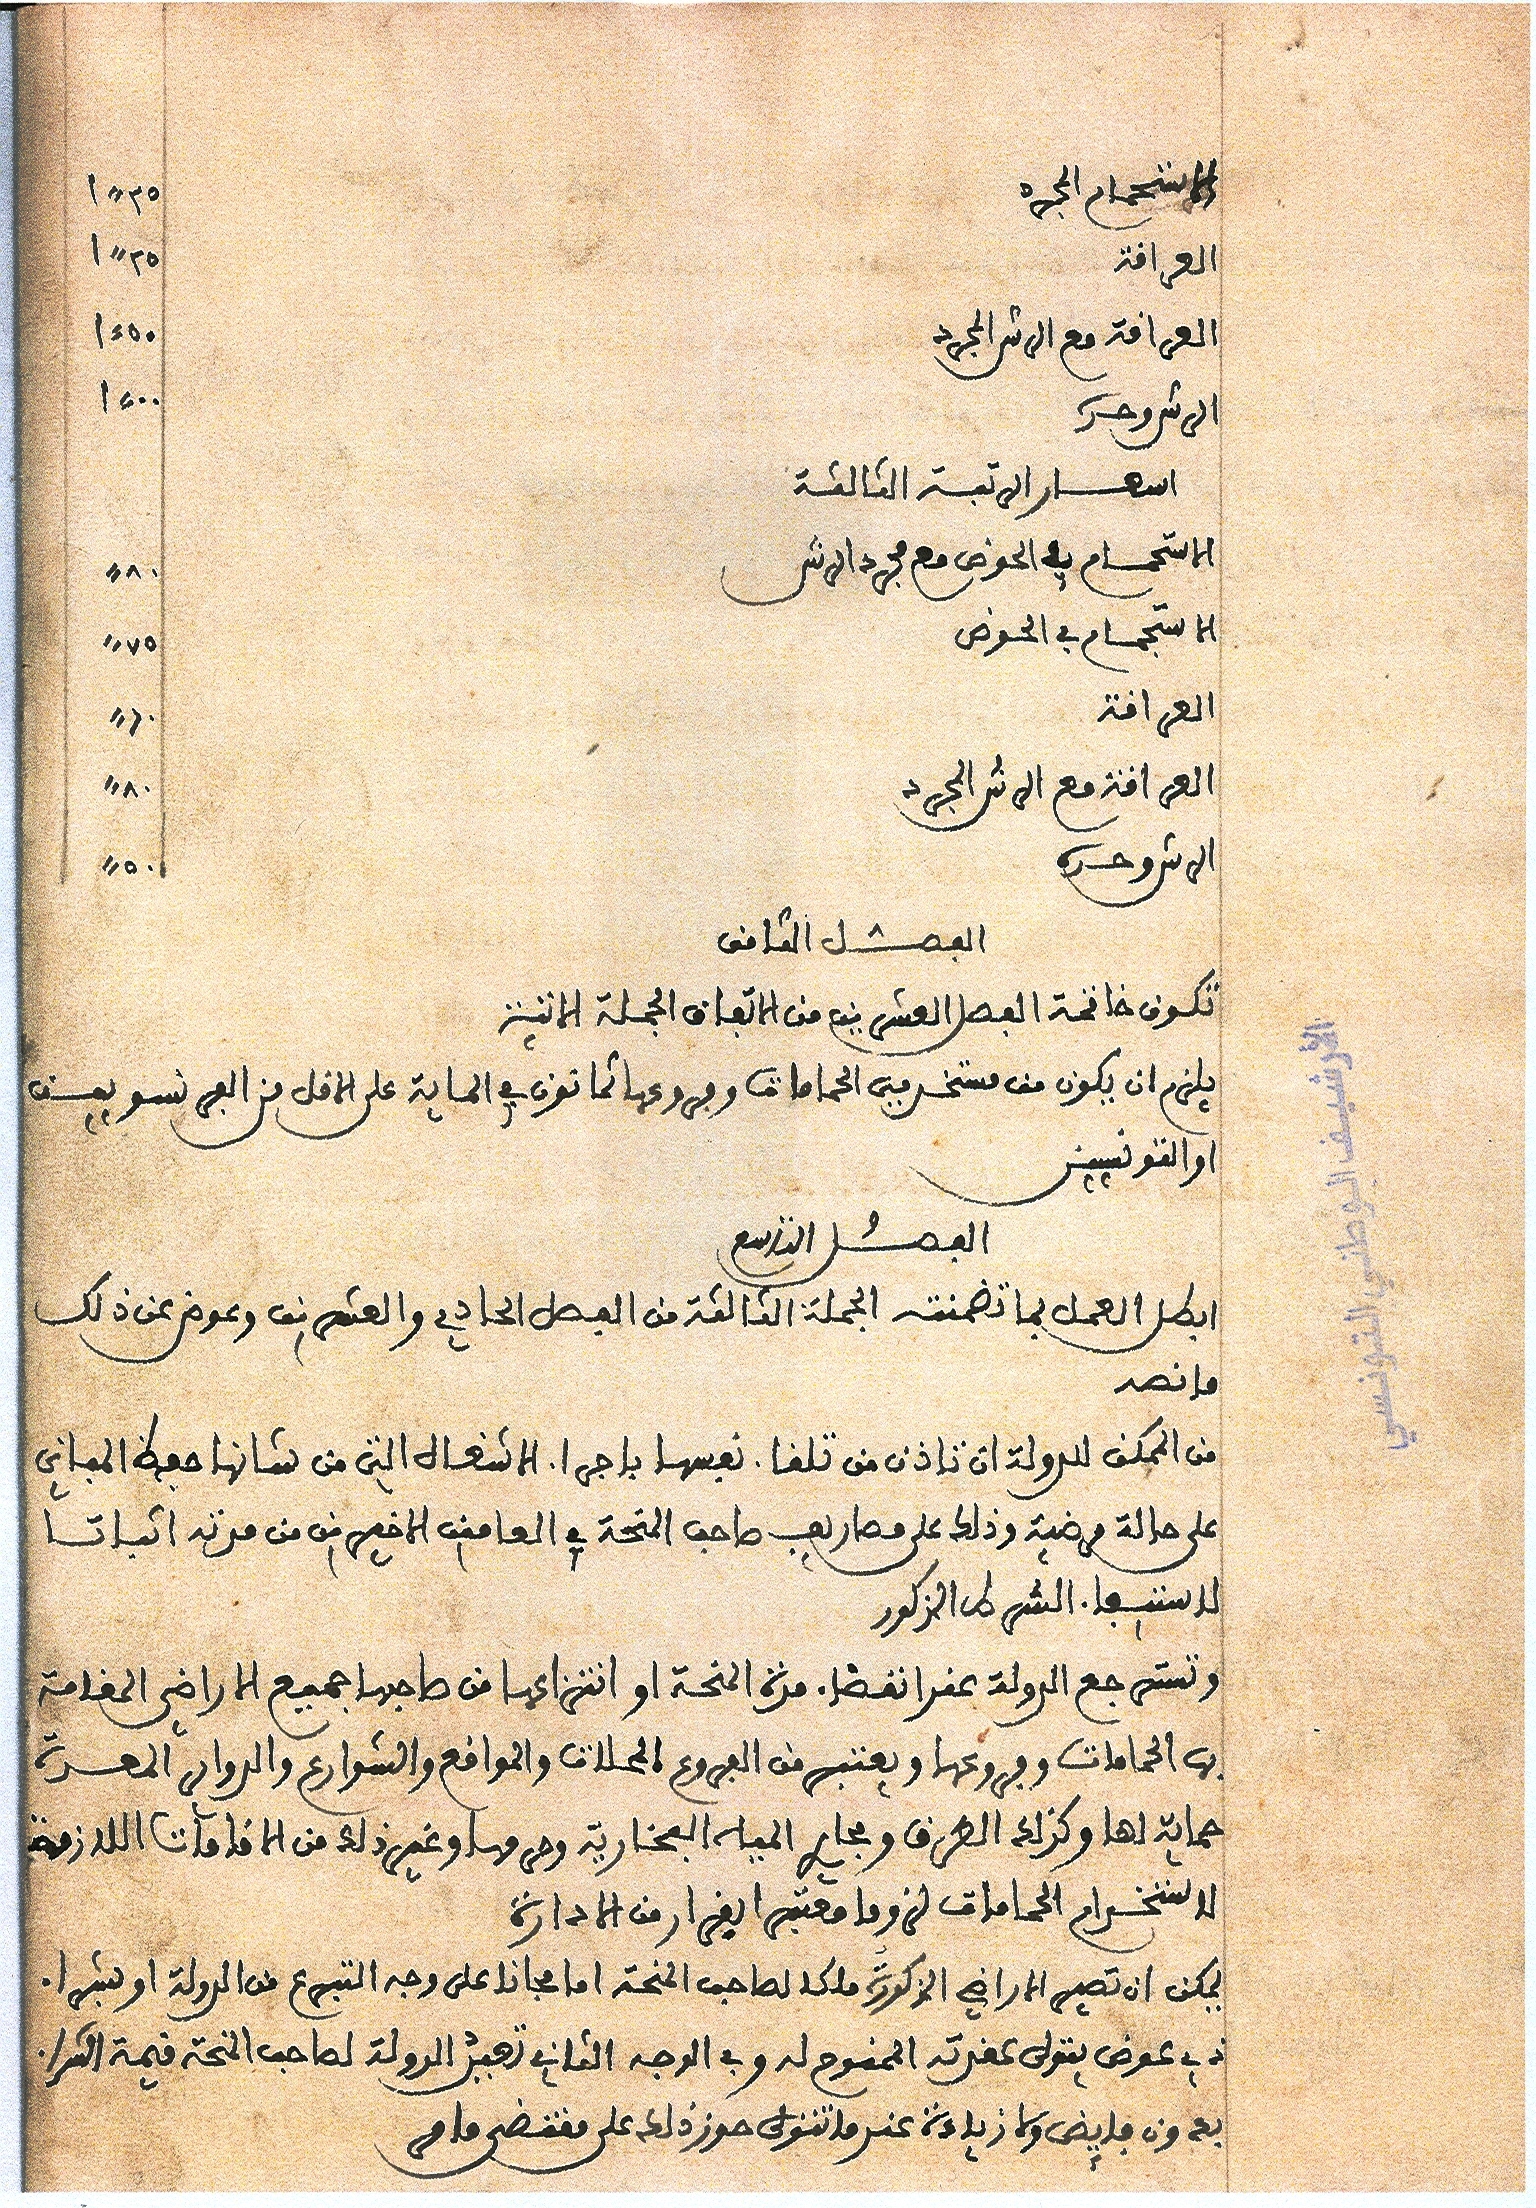 الاستحمام المجرد ١״٢٥
العرافة ١״٢٥
العرافة مع الرش المجرد ١٤٥٠
الرش وحده ١٤٠٠
اسعار الرتبة الثالثة
الاستحمام في الحوض مع مجرد الرش ״٨٠
الاستحمام في الحوض ״٧٥
العرافة ״٦٠
العرافة مع الرش المجرد ״٨٠
الرش وحده ״٥٠
الفصل الثامن
تكون خاتمة الفصل العشرين من الاتفاق الجملة الاتية
يلزم ان يكون من مستخدمين الحمامات وفروعها ثمانون في الماية على الاقل من الفرنسويين
او التونسيين
الفصل التاسع
ابطل العمل بما تضمنته الجملة الثالثة من الفصل الحادي والعشرين وعوض عن ذلك
ما نصه
من الممكن للدولة ان تاذن من تلقاء نفسها باجراء الاشغال التي من شانها حفظ المباني
على حالة مرضية وذلك على مصاريف صاحب المنحة في العامين الاخيرين من مدته اثباتا
لاستيفاء الشرط المذكور
وتسترجع الدولة عند انقضاء مدة المنحة او انتزاعها من صاحبها جميع الاراضي المقامة
بها الحمامات وفروعها ويعتبر من الفروع المحلات والمواقع والشوارع والدواير المعدة
حماية لها وكذلك الطرق ومجاري المياه البخارية وحرمها وغير ذلك من الاقامات اللازمة
لاستخدام الحمامات لزوما معتبرا بقرار من الادارة
يمكن ان تصير الاراضي المذكورة ملكا لصاحب المنحة اما مجانا على وجه التبرع من الدولة او بشراء
ذي عوض يتولى عقدته الممنوح له وفي الوجه الثاني ترجع الدولة لصاحب المنحة قيمة الشراء
بدون فايض ولا زيادة عند ما تتولى حوز ذلك على مقتضى ما مر
الأرشيف الوطني التونسي